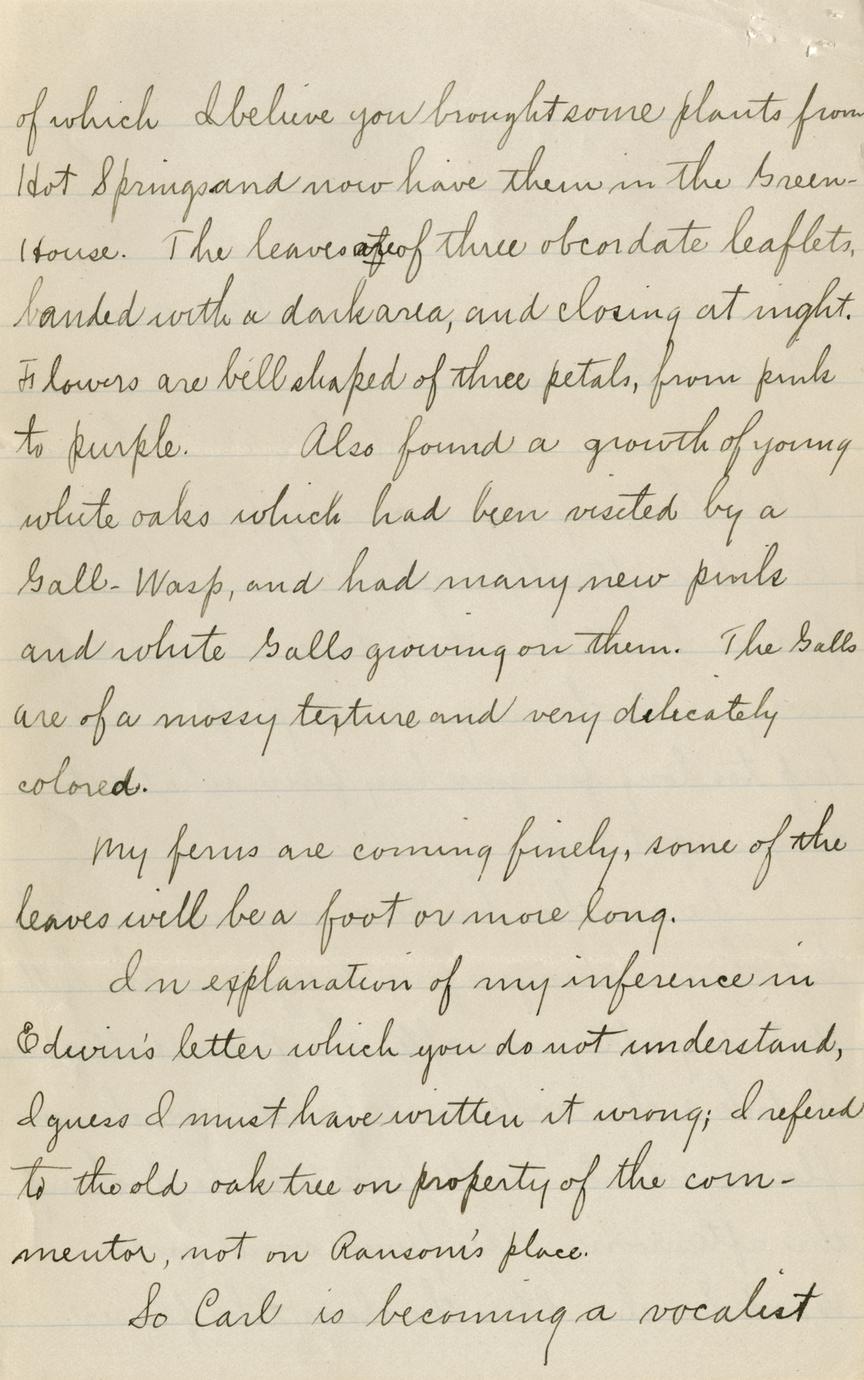 of which I believe you brought some plants from
Hot Springs and now have them in the Green-
House. The leaves are of three obcordate leaflets,
banded with a dark area, and closing at night.
Flowers are bell shaped of three petals, from pink
to purple. Also found a growth of young
white oaks which had been visited by a
Gall-Wasp, and had many new pink
and white Galls growing on them. The Galls
are of a mossy texture and very delicately
colored.
My ferns are coming finely, some of the
leaves will be a foot or more long.
In explanation of my inference in
Edwin's letter which you do not understand,
I guess I must have written it wrong; I refered
to the old oak tree on property of the com-
mentor, not on Ransom's place.
So Carl is becoming a vocalist